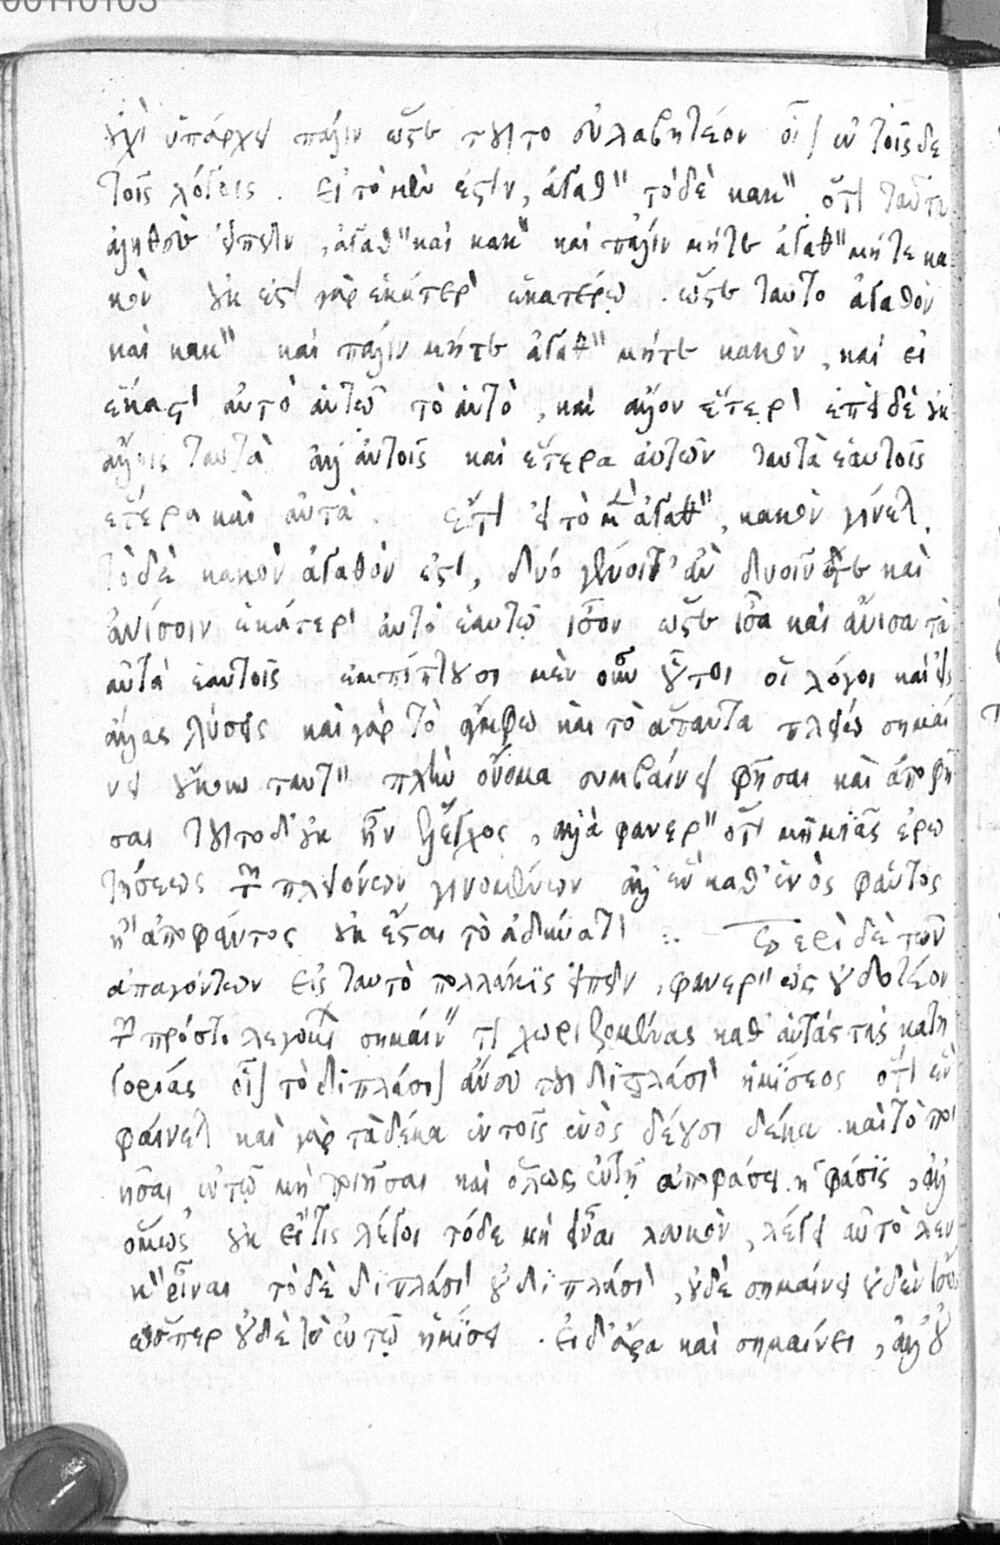 οὐχ ὑπάρχει πάλιν ὥστε τοῦτο συλλαβητέον οἷον ἐν τοῖσδε
τοῖς λόγοις . εἰ τὸ μὲν ἐστὶν, ἀγαθὸν τὸ δὲ κακὸν ὅτι ταῦτα
ἀληθὲς εἰπεῖν , ἀγαθὸν καὶ κακὸν καὶ πάλιν μήτε ἀγαθὸν μήτε κα
κὸν οὐκ ἔστι γὰρ ἑκάτερον ἑκατέρῳ . ὥστε ταυτὸ ἀγαθὸν
καὶ κακὸν καὶ πάλιν μήτε ἀγαθὸν μήτε κακὸν , καὶ εἰ
ἕκαστον αὐτὸ αὑτῷ τὸ αὐτὸ , καὶ ἄλλου ἕτερον ἐπειδὲ οὐκ
ἄλλοις ταυτὰ ἀλλ' αὑτοῖς καὶ ἕτερα αὑτῶν ταυτὰ ἑαυτοῖς
ἕτερα καὶ αὐτὰ . ἔτι εἰ τὸ μὲν ἀγαθὸν , κακὸν γίνεται .
τὸ δὲ κακὸν ἀγαθὸν ἐστι, δύο γένοιτ' ἂν δυοῖν τε καὶ
ἀνίσοιν ἑκάτερον αὐτὸ ἑαυτῷ ἶσον ὥστε ἶσα καὶ ἄνισα τὰ
αὐτὰ ἑαυτοῖς ἐμπίπτουσι μὲν οὖν οὗτοι οἱ λόγοι καὶ εἰς
ἄλλας λύσεις καὶ γὰρ τὸ ἄμφω καὶ τὸ ἅπαντα πλείω σημαί
νει οὔκουν ταυτὸν πλὴν ὄνομα συμβαίνει φῆσαι καὶ ἀποφῆ
σαι τοῦτο δ' οὐκ ἦν ἔλεγχος , ἀλλὰ φανερὸν ὅτι μὴ μιᾶς ἐρω
τήσεως τῶν πλειόνων γινομένων ἀλλ' ἓν καθ' ἑνὸς φάντος
ἢ ἀποφάντος οὐκ ἔσται τὸ ἀδύνατον :. Περὶ δὲ τῶν
ἀπαγόντων εἰς ταυτὸ πολλάκις εἰπεῖν , φανερὸν ὡς οὐ δοτέον
τῶν πρός τι λεγομένων σημαίνειν τι χωριζομένας καθ' αὑτὰς τὰς κατη
γορίας οἷον τὸ διπλάσιον ἄνευ τοῦ διπλάσιον ἡμίσεος ὅτι ἐν
φαίνεται καὶ γὰρ τὰ δέκα ἐν τοῖς ἑνὸς δέουσι δέκα καὶ τὸ ποι
ῆσαι ἐν τῷ μὴ ποιῆσαι καὶ ὅλως ἐν τῇ ἀποφάσει ἡ φάσις , ἀλλ'
ὅμως οὐκ εἴ τις λέγοι τόδε μὴ εἶναι λευκὸν , λέγει αὐτὸ λευ
κὸν εἶναι τὸ δὲ διπλάσιον οὐ διπλάσιον , οὐδὲ σημαίνει οὐδὲν ἴσως
ὥσπερ οὐδὲ τὸ ἐν τῷ ἡμίσει . εἰ δ' ἄρα καὶ σημαίνει , ἀλλ' οὐ